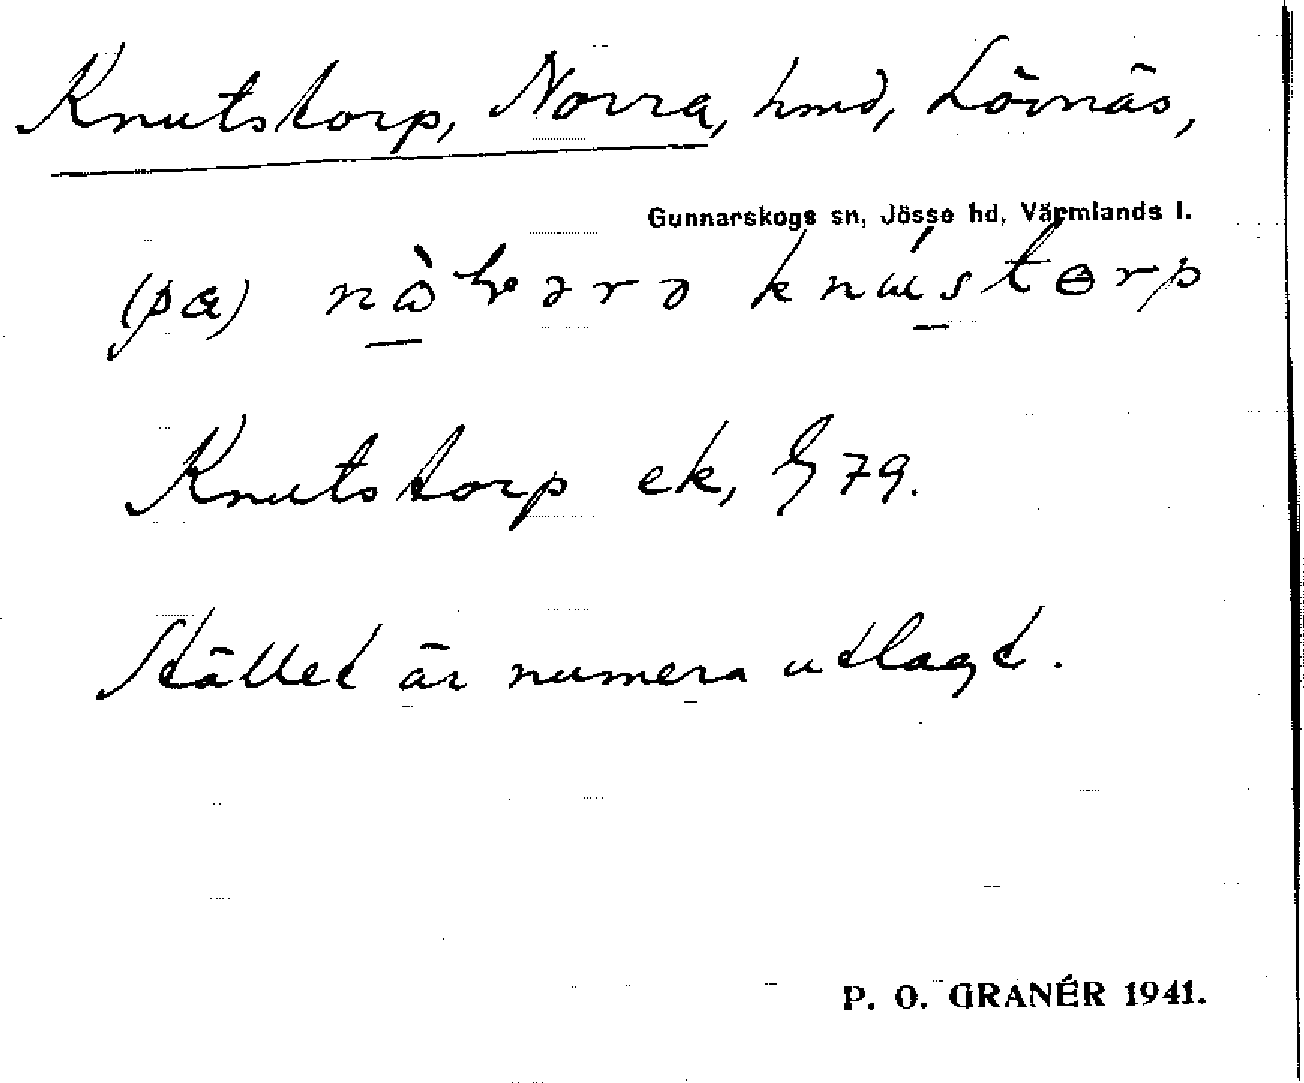 Knutstorp, Norra, hmd, Lövnäs,
Gunnarskogs sn, Jösse hd, Värmlands l.
(pα) knústɵrp
Knutstorp ek, § 79.
Stället är numera utlagt.
P. O. GRANÉR 1941.